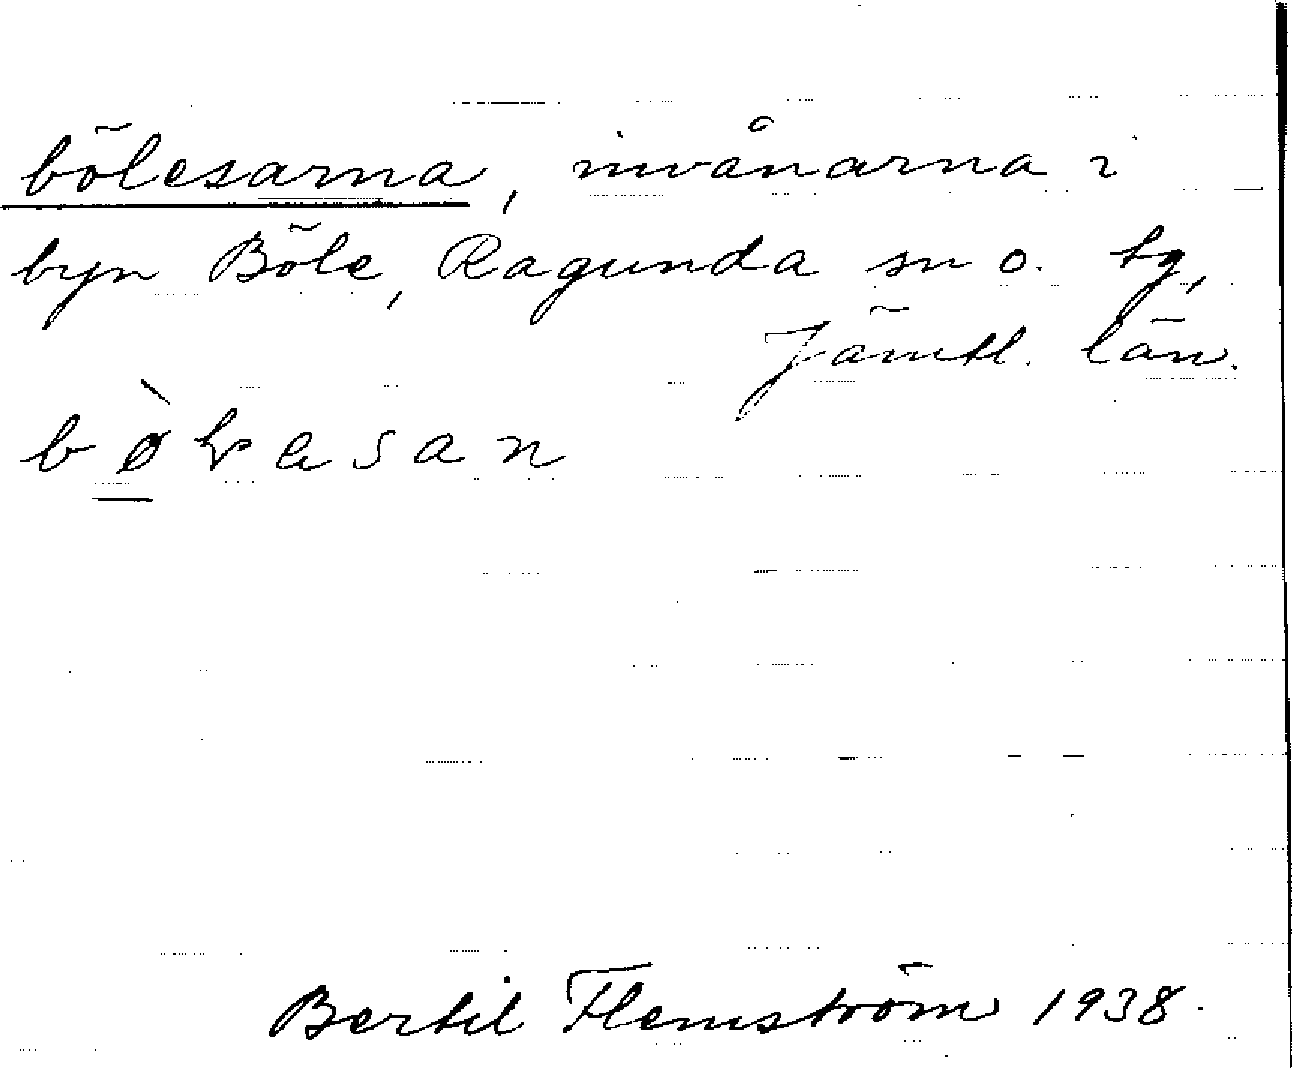 bölesarna, invånarna i
byn Böle, Ragunda sn o. tg,
Jämtl. län.
Bertil Flemström 1938.